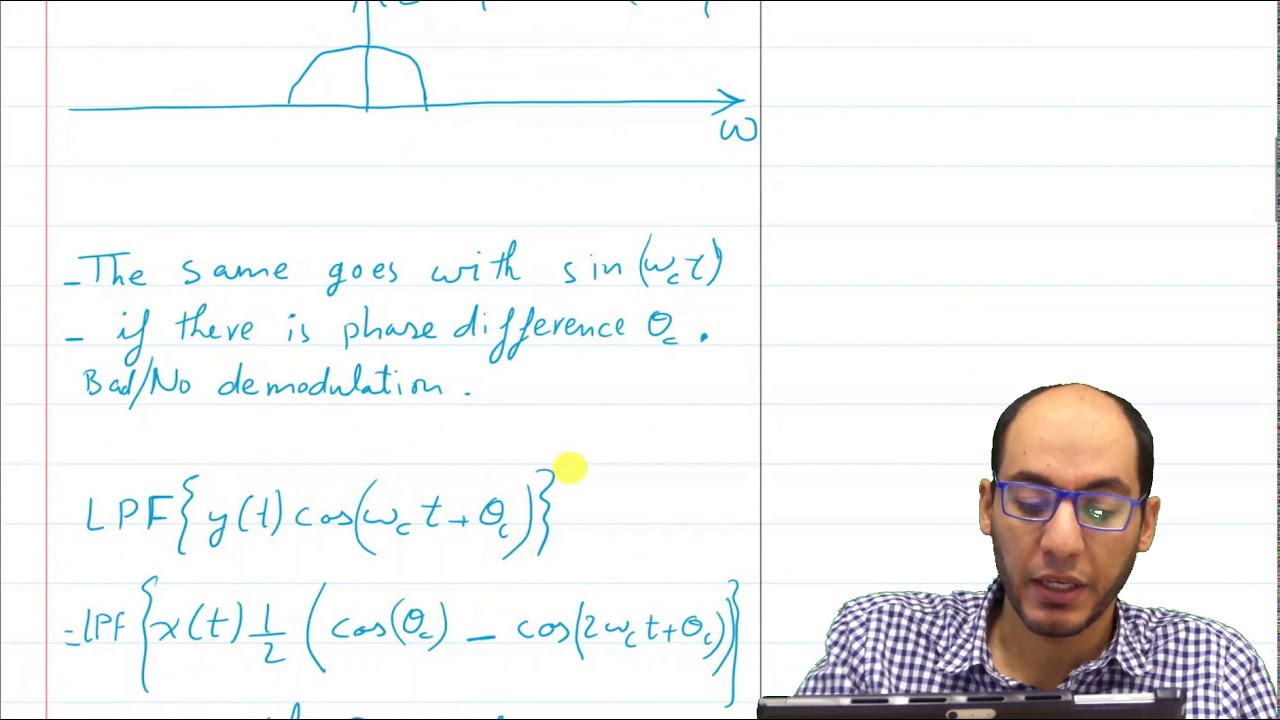 ω
- The same goes with sin(ω_c t)
- if there is phase difference θ_c .
Bad/No demodulation .
LPF{y(t) cos(ω_c t + θ_c)}
= LPF{x(t) 1/2 (cos(θ_c) - cos(2ω_c t + θ_c))}